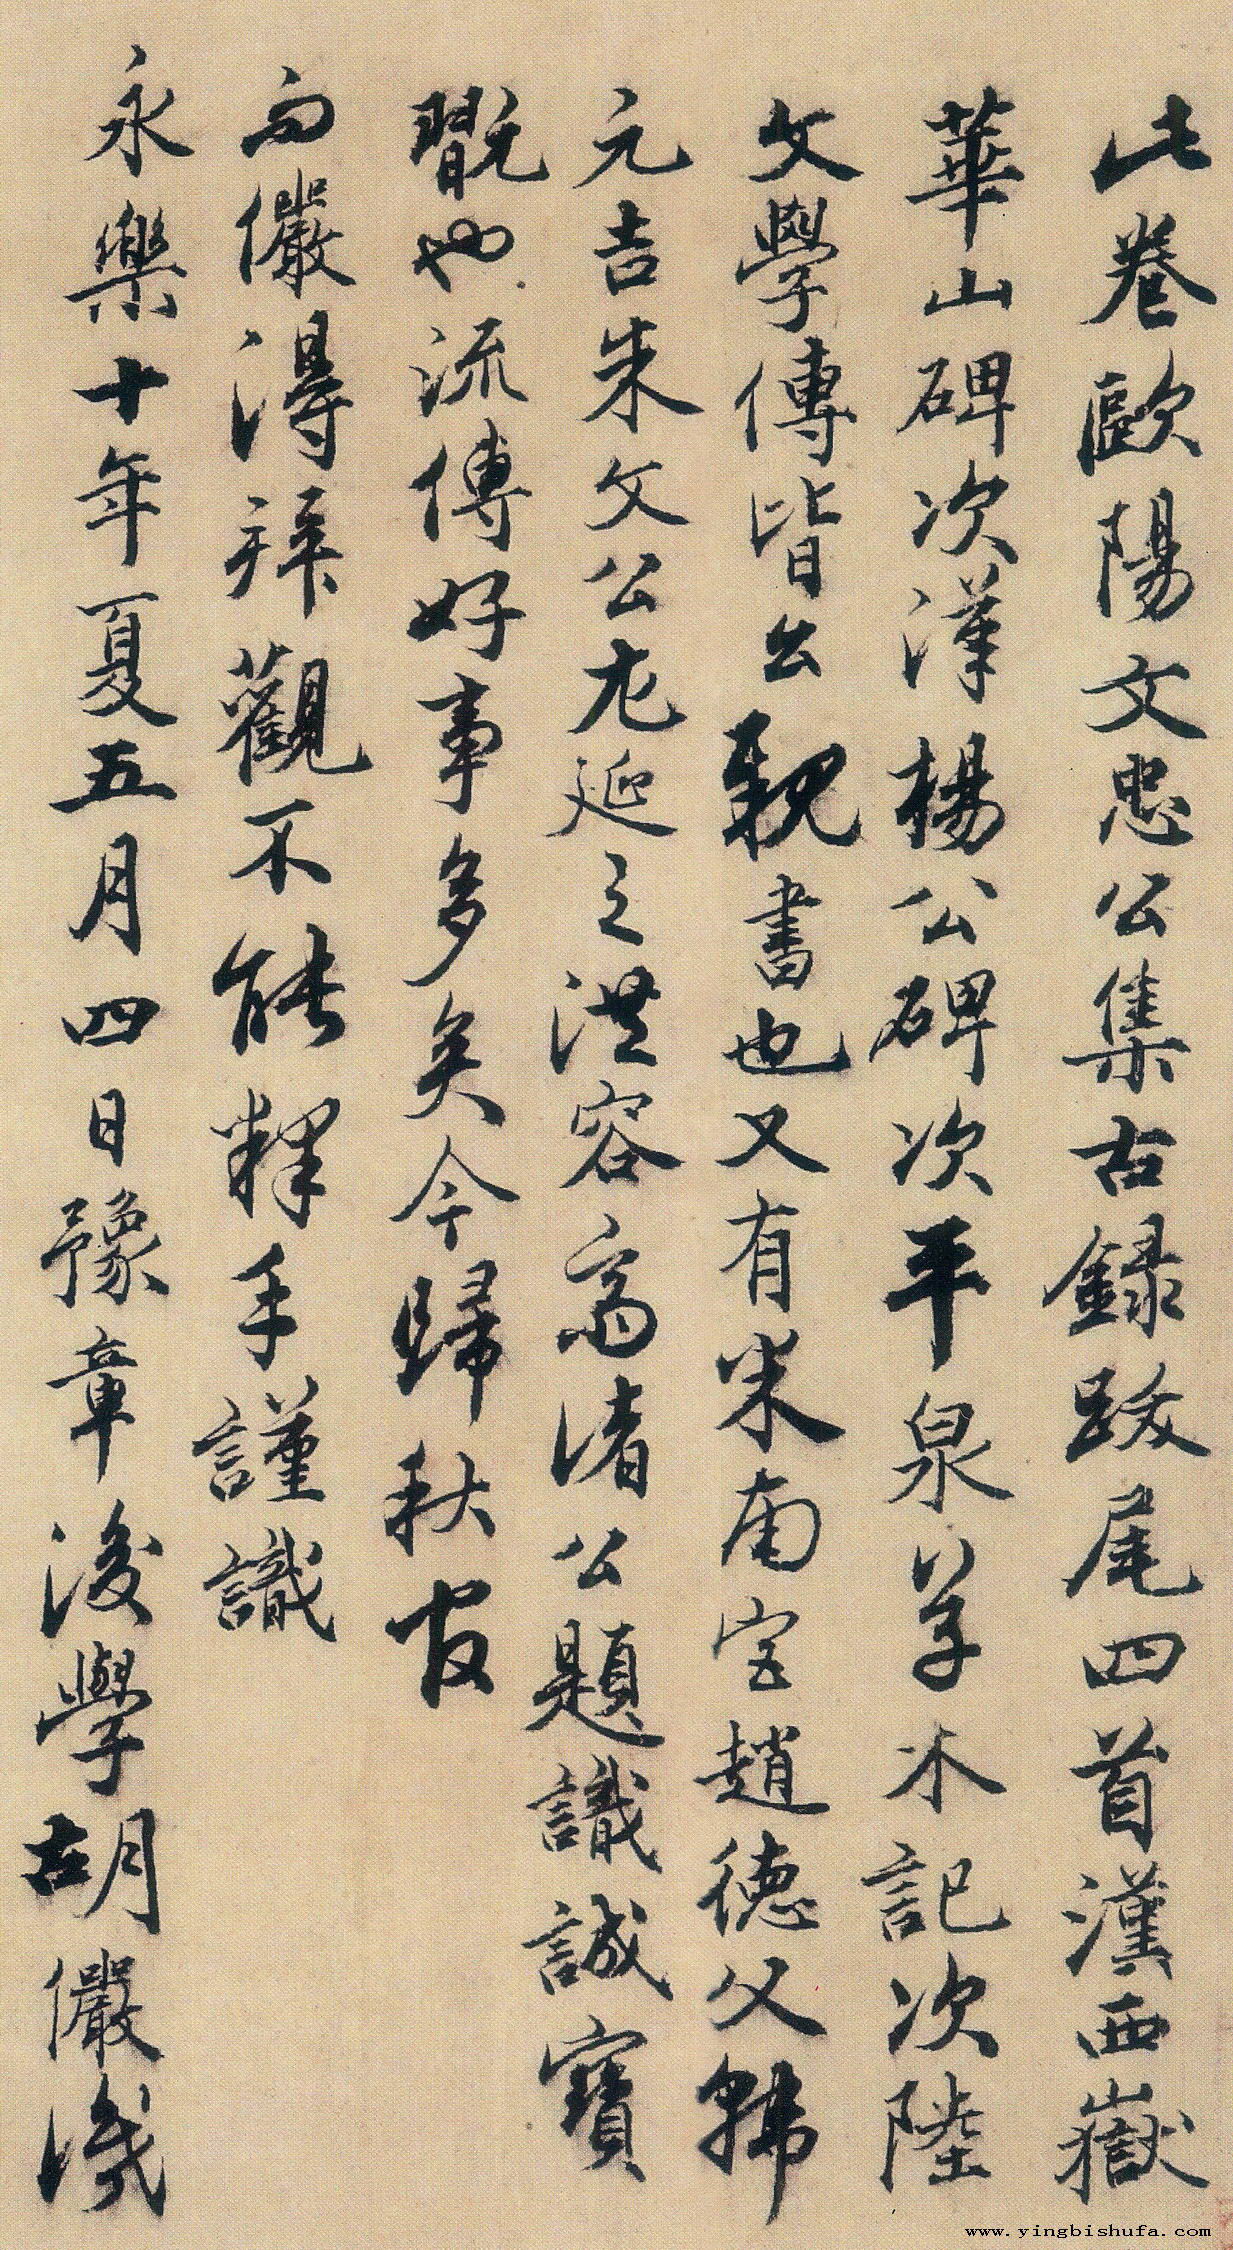 此卷歐陽文忠公集古錄跋尾四首漢西嶽
華山碑次漢楊公碑次平泉草木記次陸
文學傳皆公親書也又有米南宮趙德父韩
元吉朱文公尤延之洪容齋諸公題識誠寶
翫也流傳好事多矣今歸秋官
而儼得拜觀不能釋手謹識
永樂十年夏五月四日豫章後學胡儼識
www.yingbishufa.com